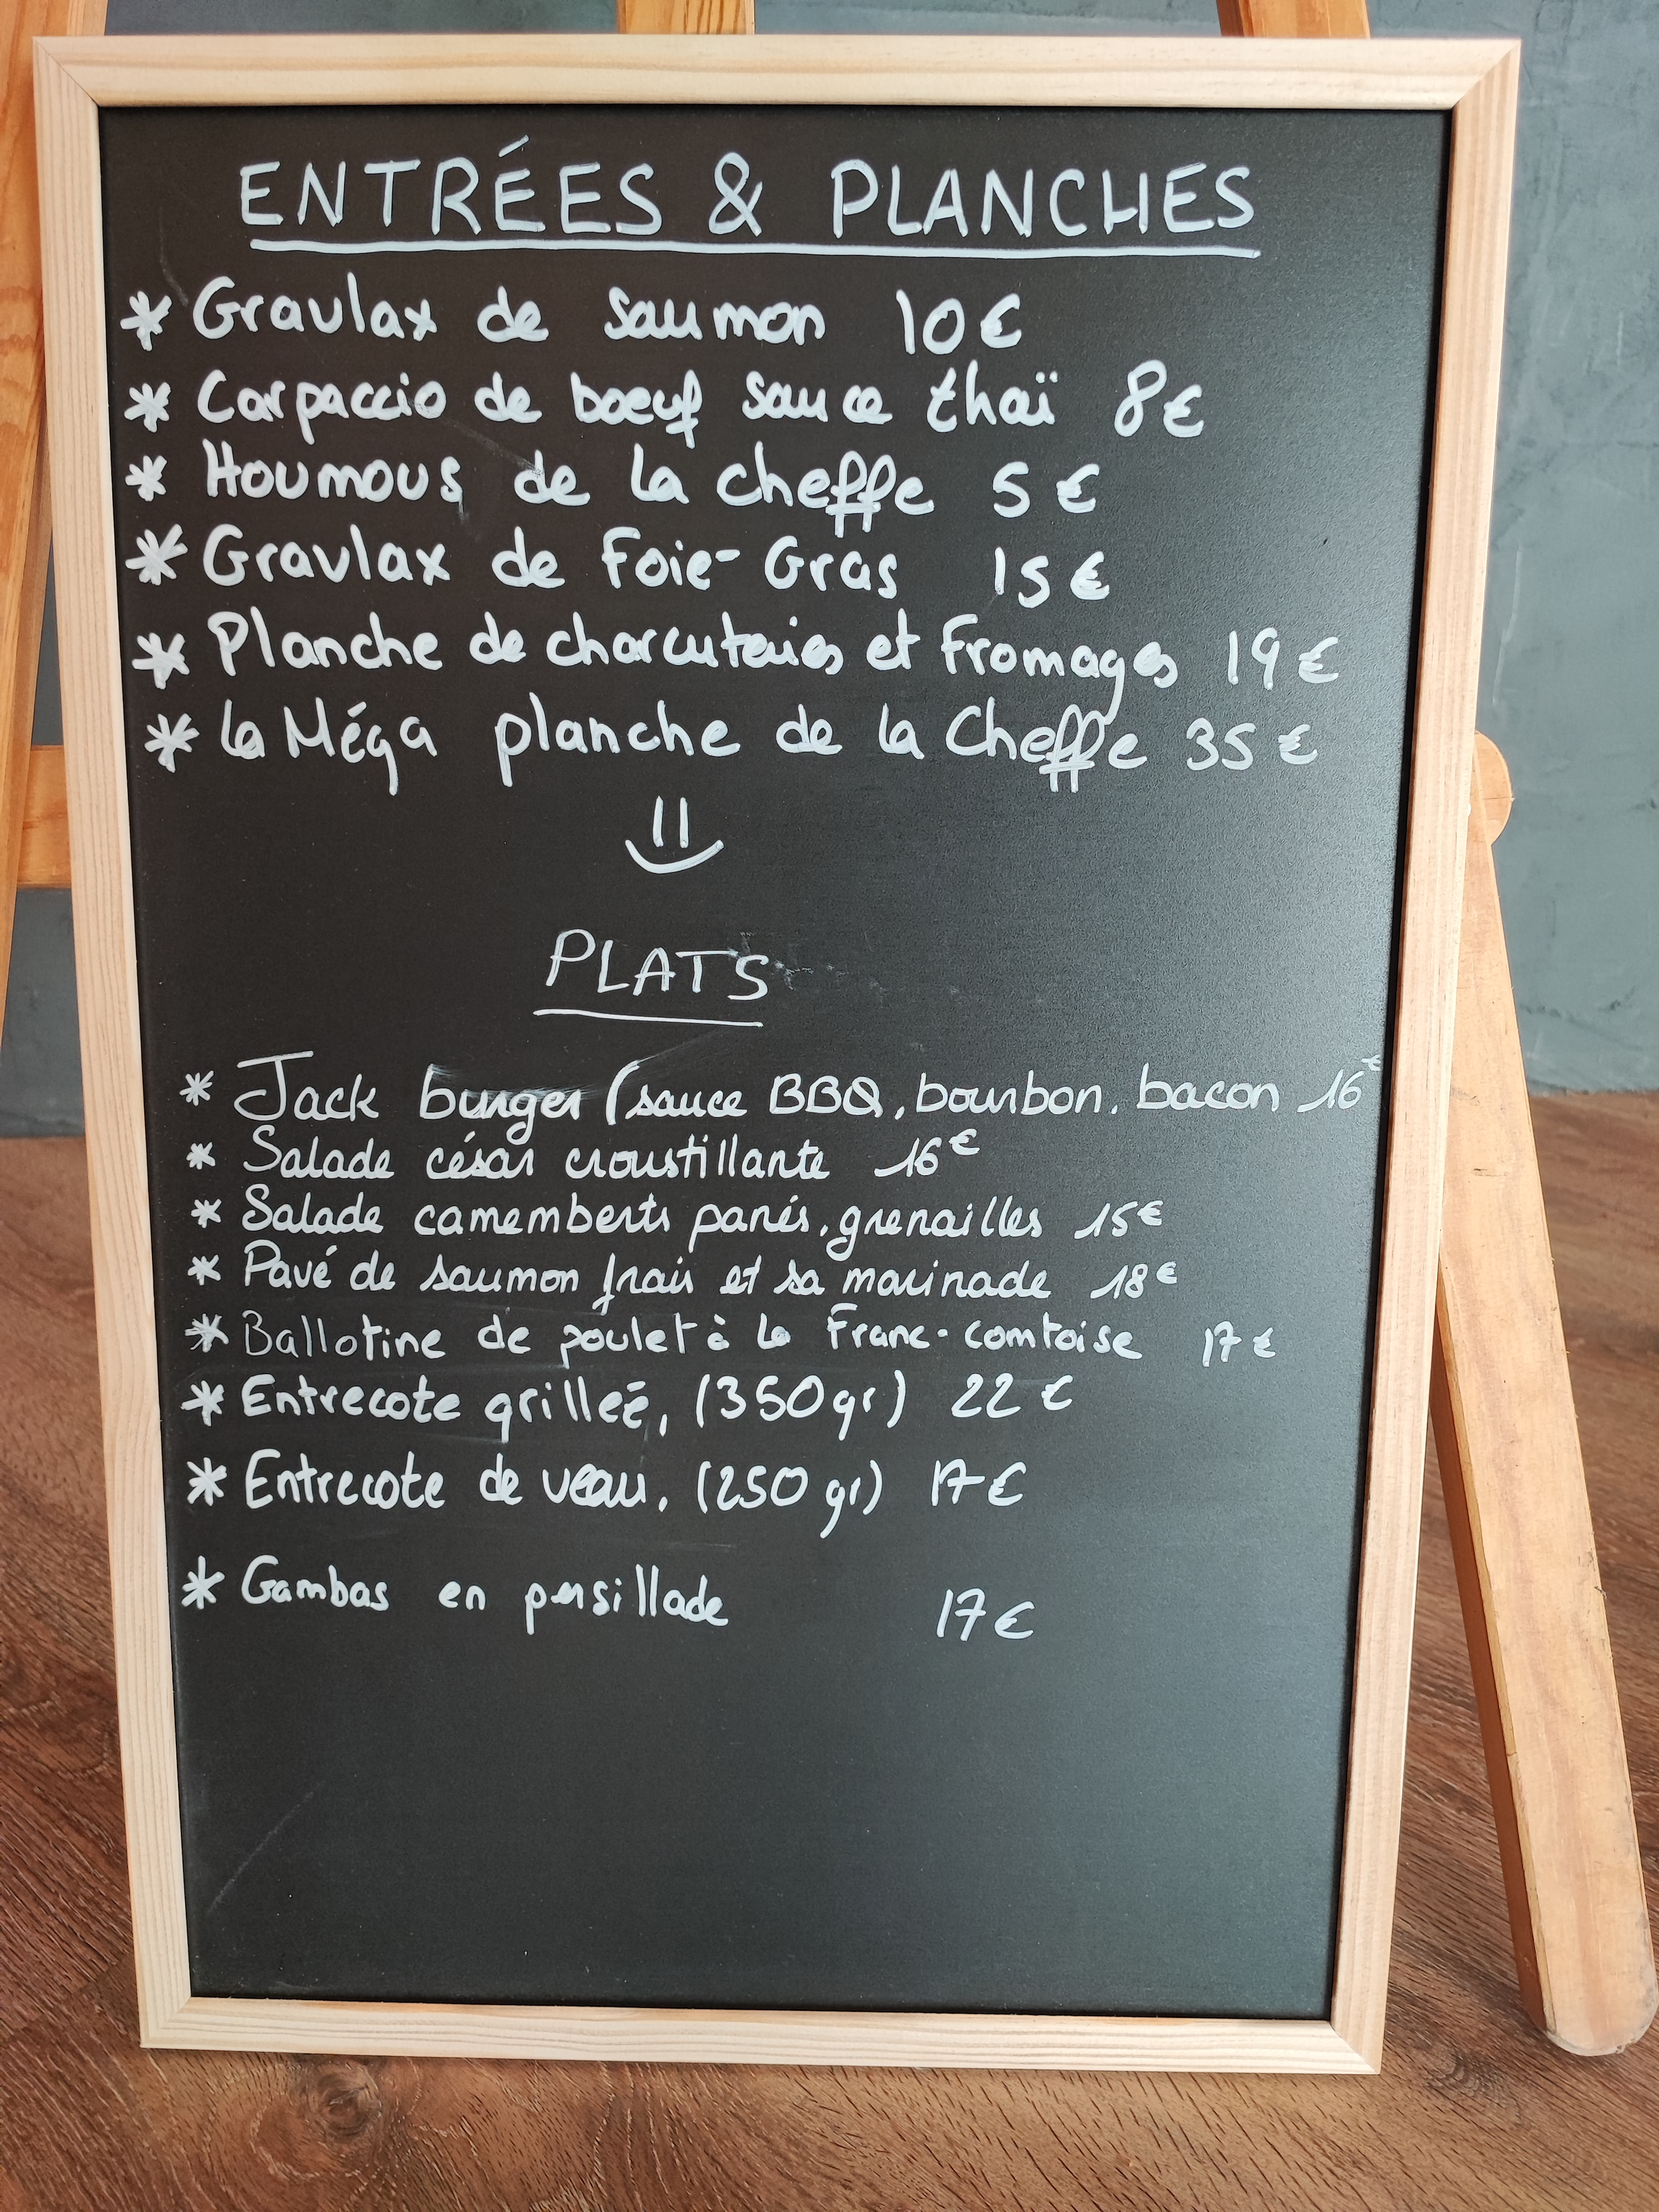 ENTRÉES & PLANCHES
* Gravlax de saumon 10€
* Carpaccio de boeuf sauce thaï 8€
* Houmous de la cheffe 5€
* Gravlax de Foie-Gras 15€
* Planche de charcuteries et Fromages 19€
* La Méga planche de la Cheffe 35€
PLATS
* Jack burger (sauce BBQ, bourbon, bacon 16€
* Salade césar croustillante 16€
* Salade camemberts panés, grenailles 15€
* Pavé de saumon frais et sa marinade 18€
* Ballotine de poulet à la Franc-comtoise 17€
* Entrecote grilleé, (350gr) 22€
* Entrecote de veau, (250gr) 17€
* Gambas en persillade 17€